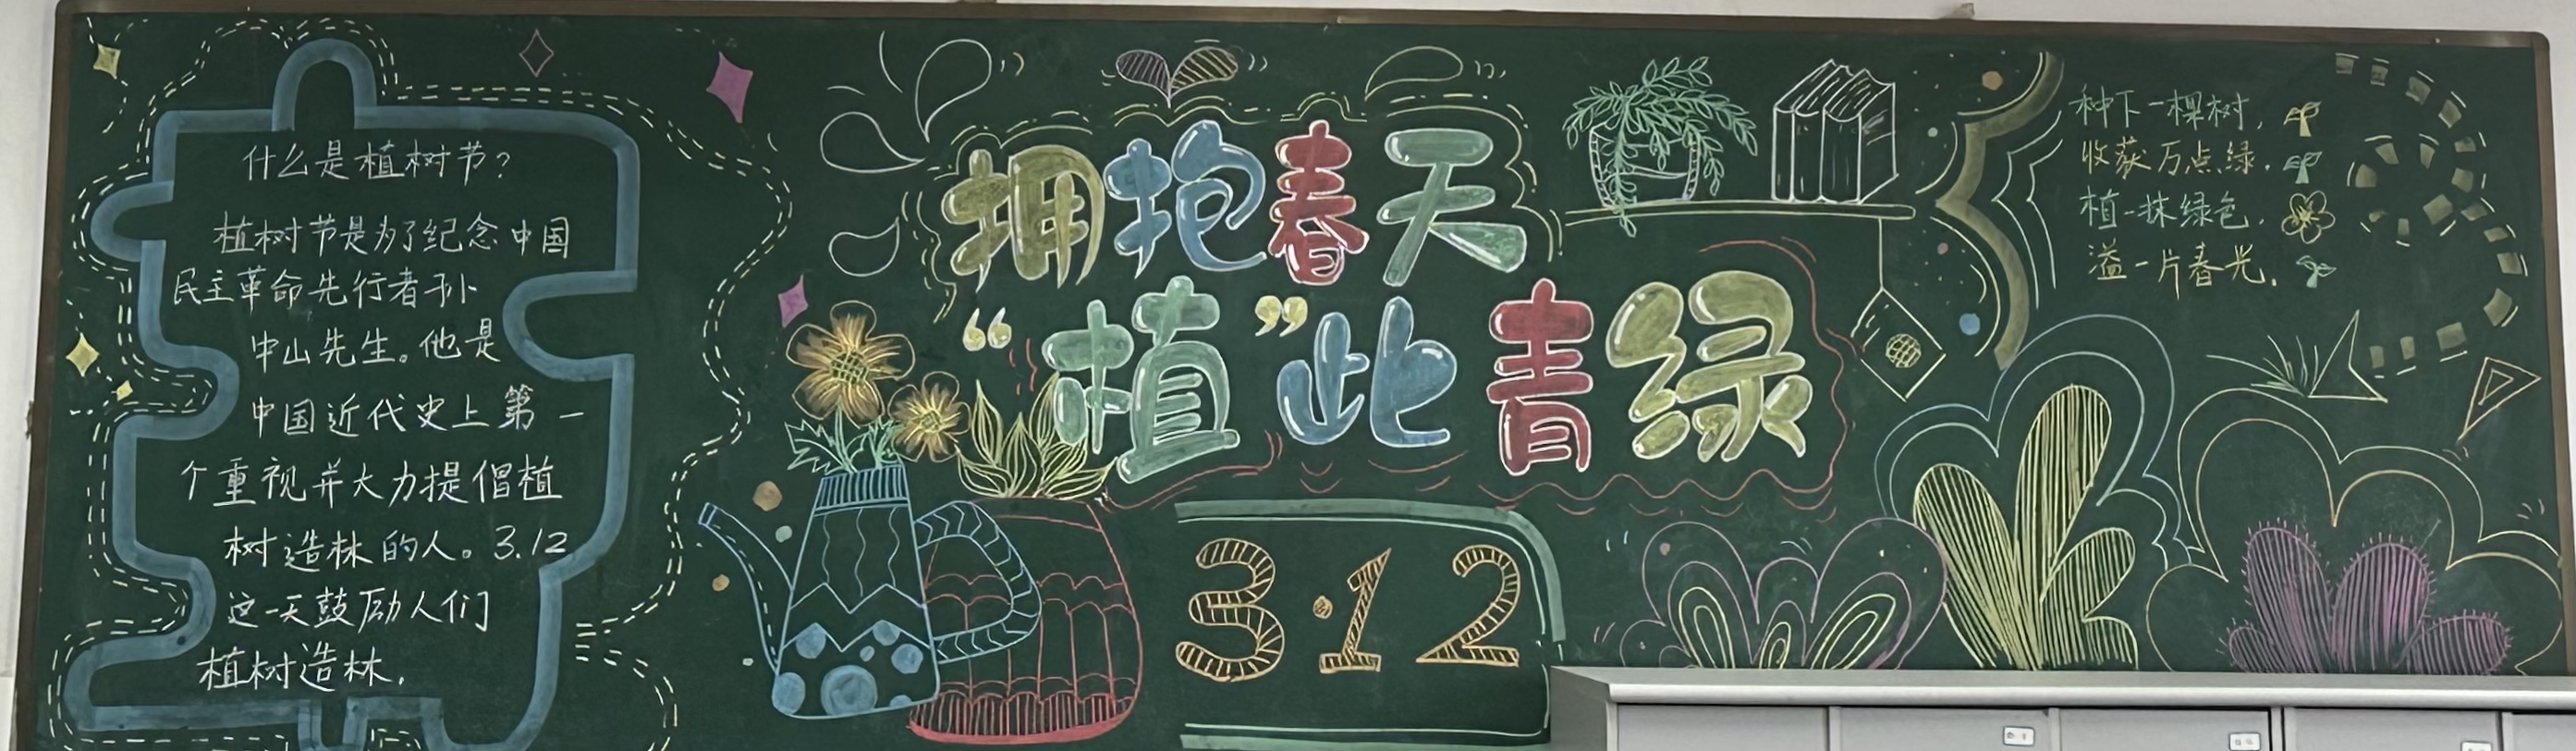 什么是植树节？
植树节是为了纪念中国
民主革命先行者孙
中山先生。他是
中国近代史上第一
个重视并大力提倡植
树造林的人。3.12
这一天鼓励人们
植树造林.
拥抱春天
“植”此青绿
3·12
种下一棵树,
收获万点绿.
植一抹绿色.
溢一片春光.